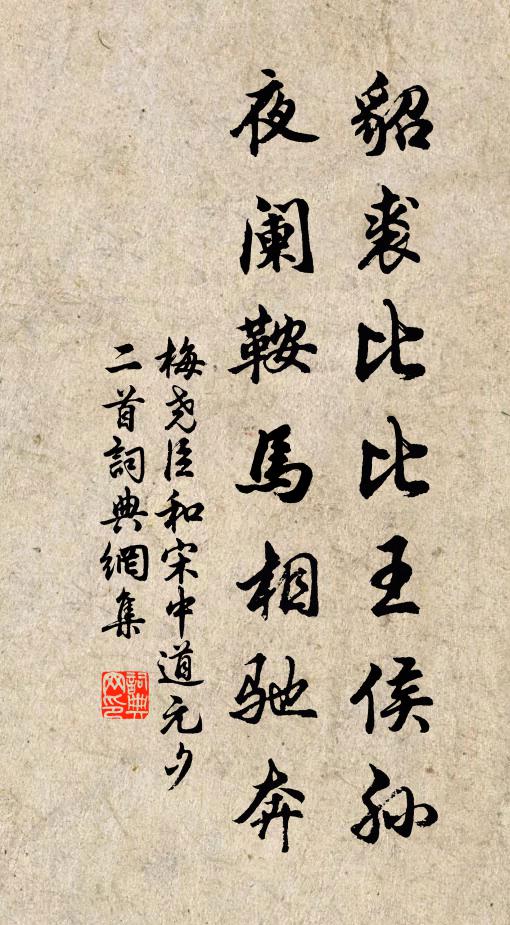 貂裘比比王侯孙
夜阑鞍马相驰奔
梅尧臣和宋中道元夕
二首詞典網集
詞典网印